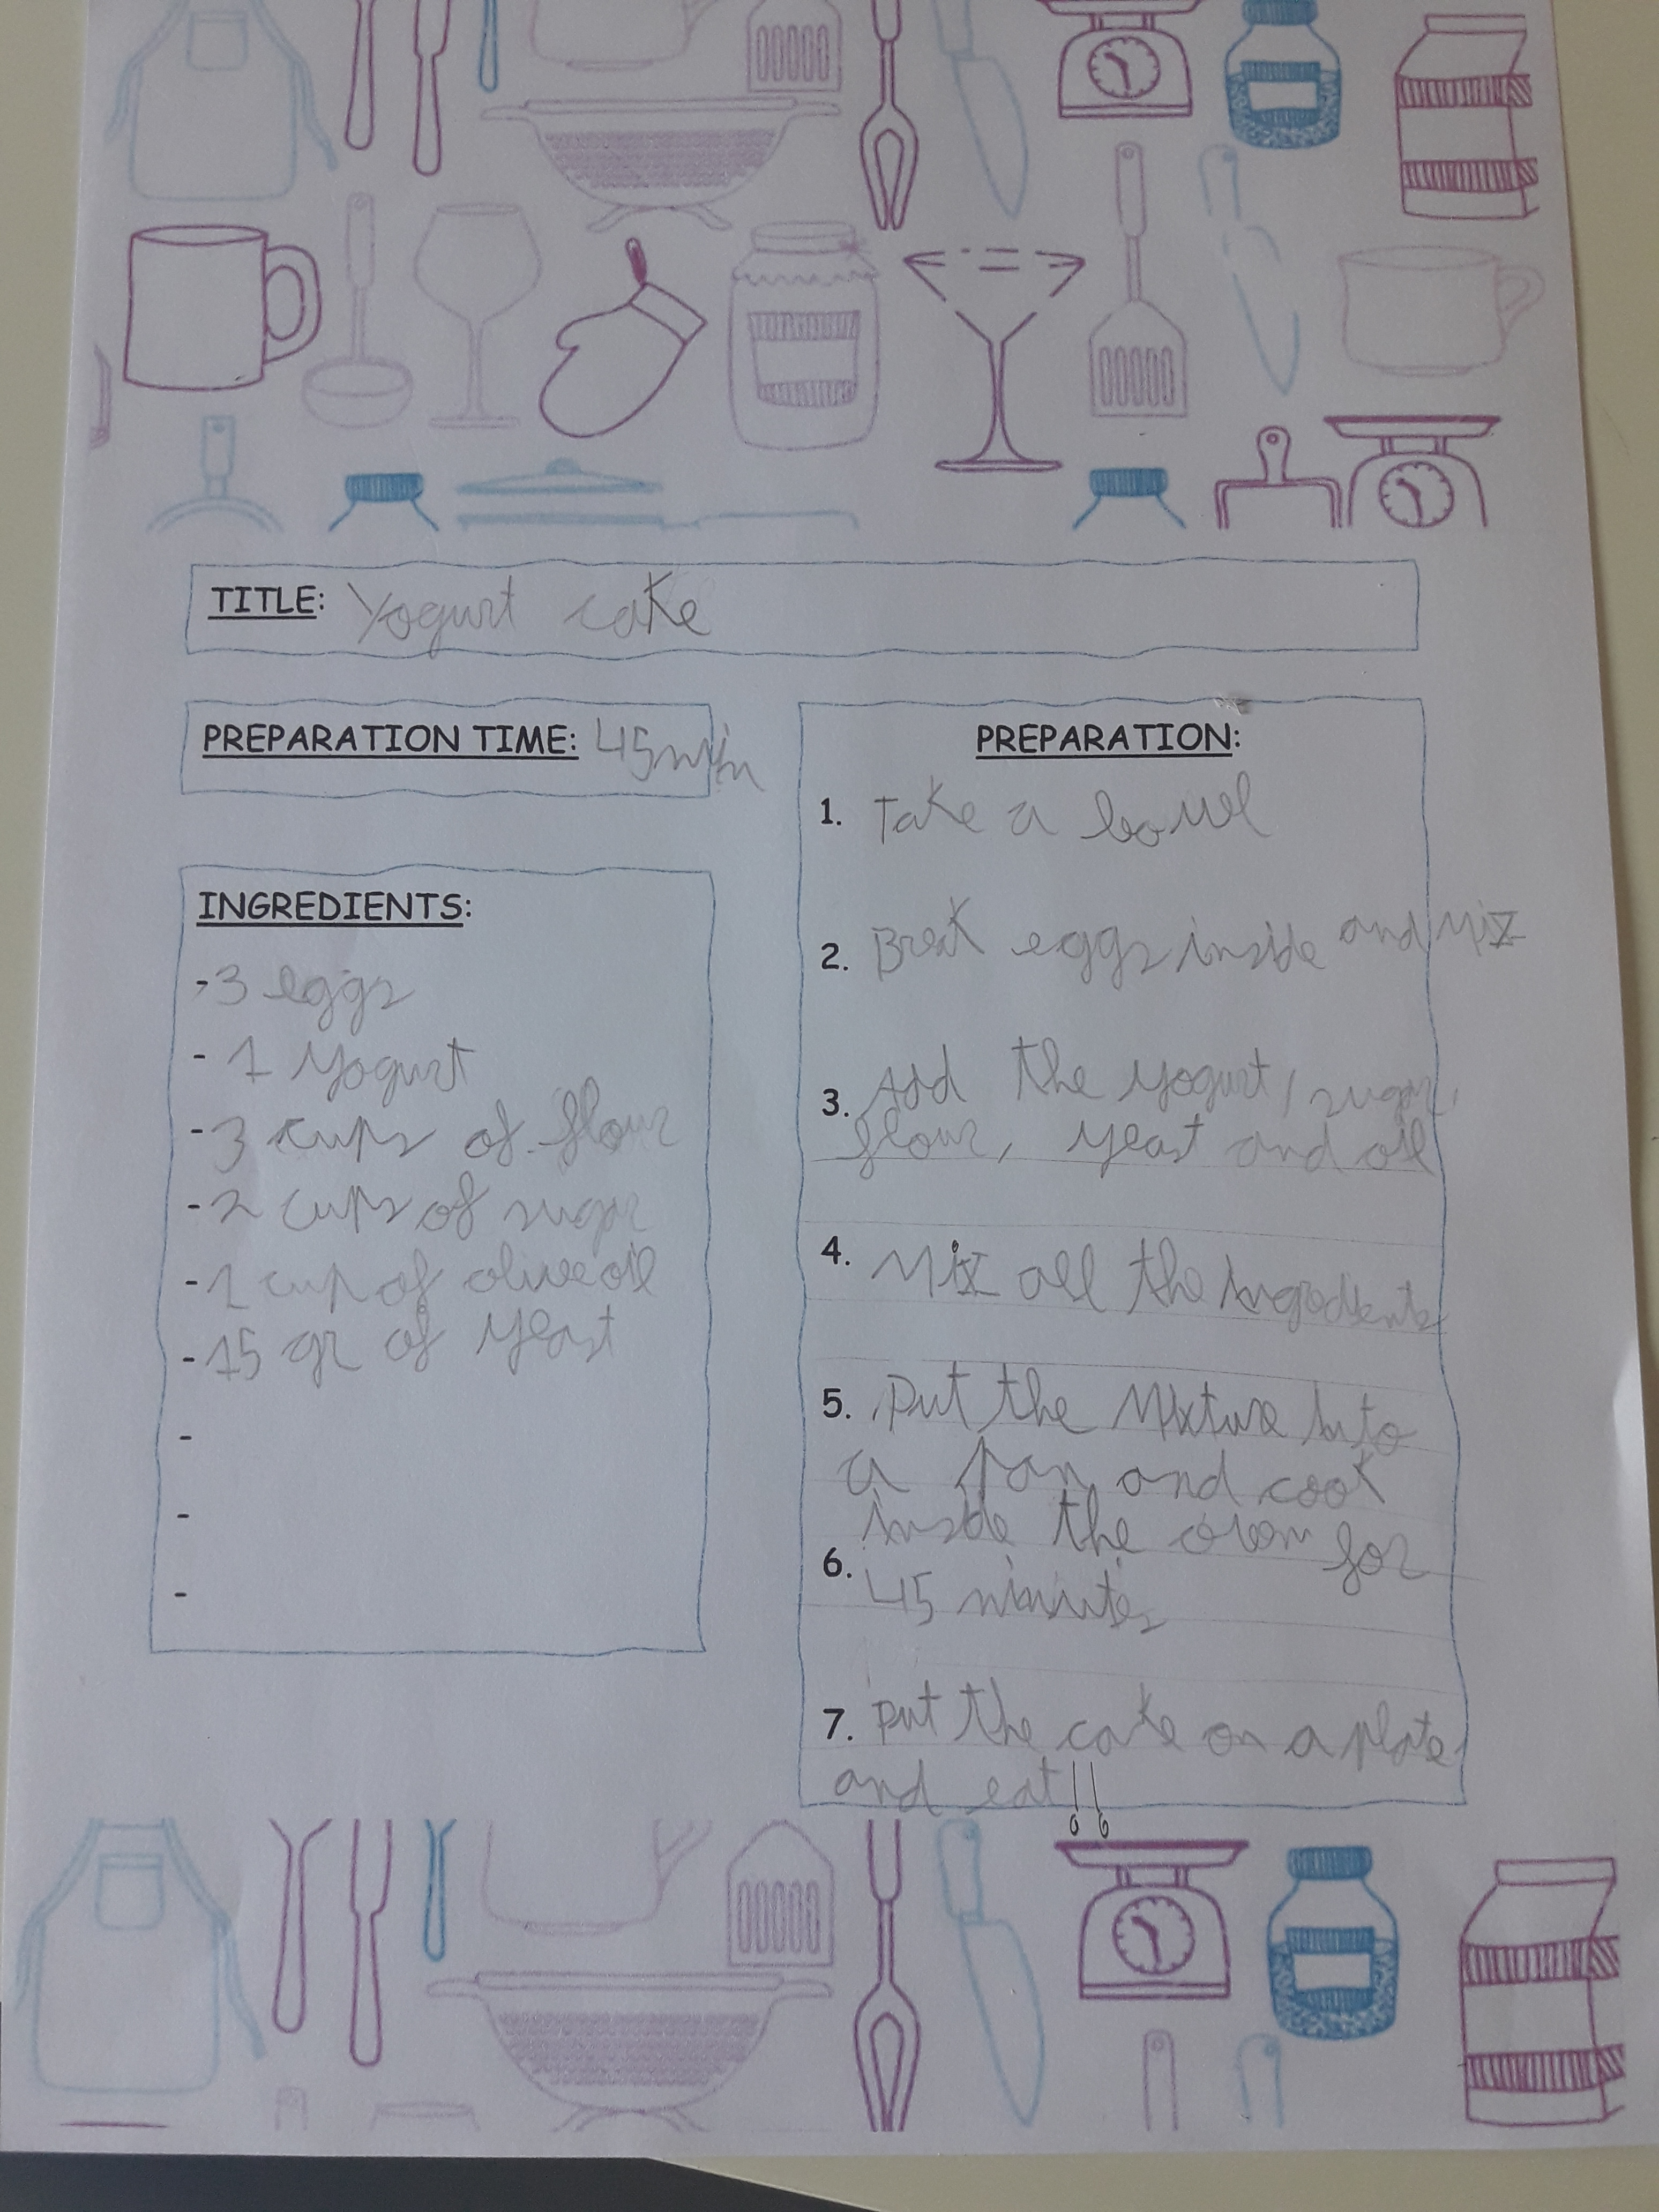 TITLE: Yogurt cake
PREPARATION TIME: 45 min
INGREDIENTS:
- 3 eggs
- 1 yogurt
- 3 cups of flour
- 2 cups of sugar
- 1 cup of olive oil
- 15 gr of yeast
-
-
-
PREPARATION:
1. Take a bowl
2. Break eggs inside and mix
3. Add the yogurt, sugar,
flour, yeast and oil
4. Mix all the ingredients
5. Put the mixture into
a pan and cook
inside the oven for
6. 45 minutes
7. Put the cake on a plate
and eat!!